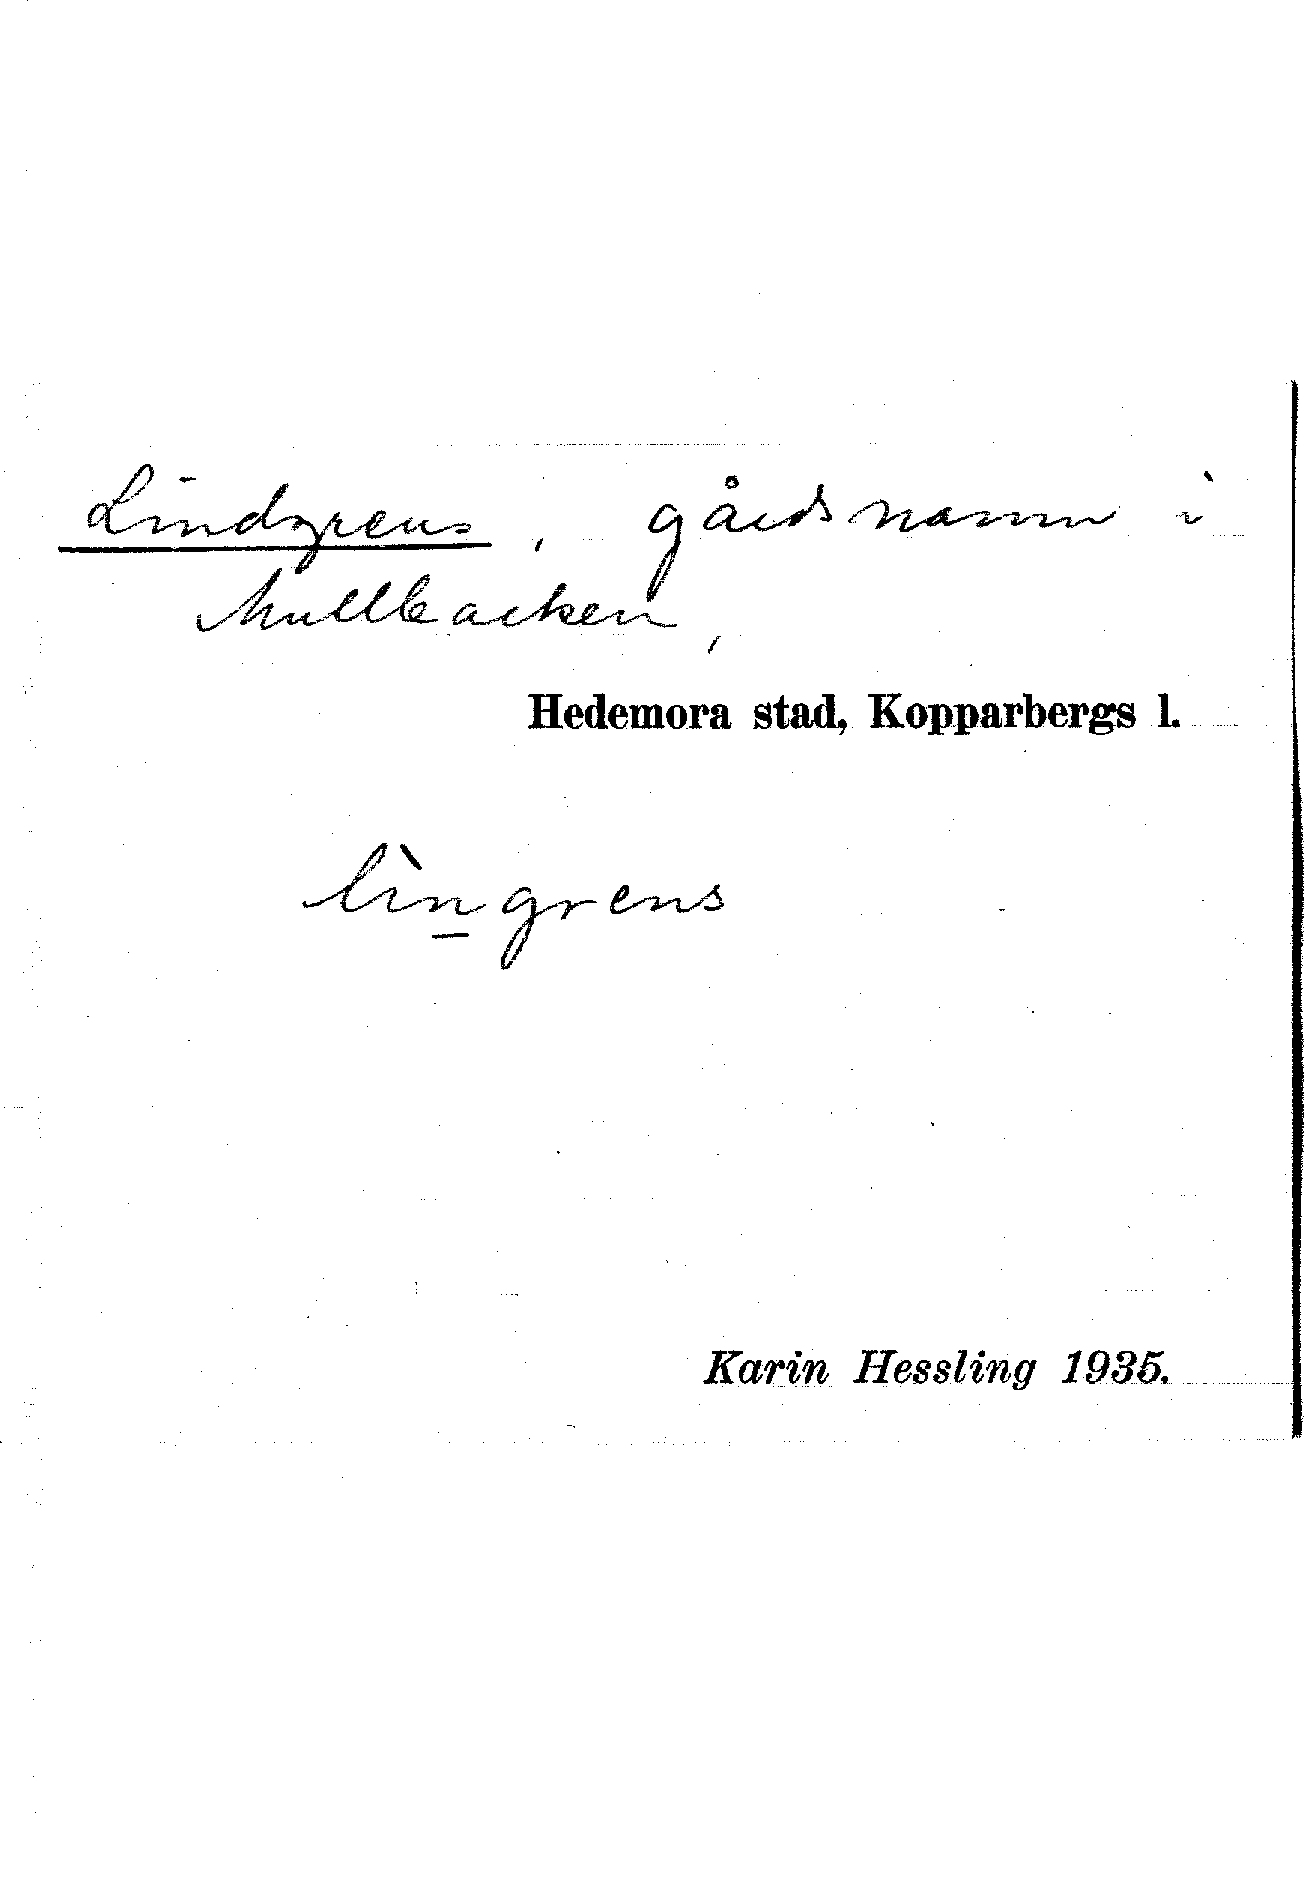 Lindgrens, gårdsnamn i
Mullbacken,
Hedemora stad, Kopparbergs l.
lìn̲grens
Karin Hessling 1935.